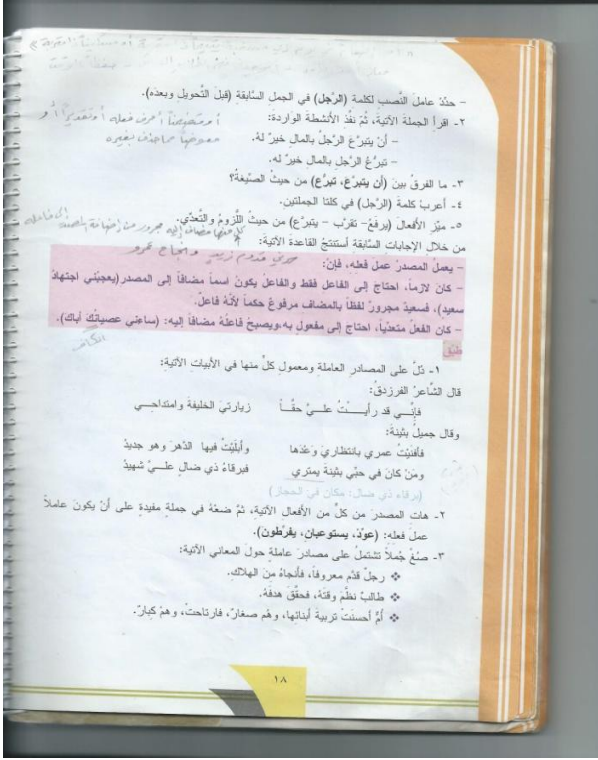 - حدّدْ عاملَ النَّصبِ لكلمة (الرَّجل) في الجملِ السَّابقةِ (قبلَ التَّحويلِ وبعدَه).
٢- اقرأ الجملةَ الآتيةَ، ثمَّ نفِّذِ الأنشطةَ الواردةَ:
- أنْ يتبرَّعَ الرَّجلُ بالمالِ خيرٌ لهُ.
- تبرُّعُ الرَّجلِ بالمالِ خيرٌ له.
٣- ما الفرقُ بينَ (أن يتبرَّعَ، تبرُّع) من حيثُ الصِّيغةُ؟
٤- أعربْ كلمةَ (الرَّجل) في كلتا الجملتين.
٥- ميِّزِ الأفعالَ (يرفعُ- تقرَّب - يتبرَّع) من حيثُ اللُّزومُ والتَّعدِّي.
من خلالِ الإجاباتِ السَّابقةِ أستنتجُ القاعدةَ الآتيةَ:
- يعملُ المصدرُ عملَ فعله، فإنْ:
- كانَ لازماً، احتاجَ إلى الفاعلِ فقط والفاعلُ يكونُ اسماً مضافاً إلى المصدر(يعجبُني اجتهادُ
سعيدٍ)، فسعيدٌ مجرورٌ لفظاً بالمضاف مرفوعٌ حكماً لأنَّهُ فاعلٌ.
- كان الفعلُ متعدِّياً، احتاجَ إلى مفعولٍ به،ويصبحُ فاعلُهُ مضافاً إليه: (ساءني عصيانُكَ أباك).
طبّق
١- دُلَّ على المصادرِ العاملةِ ومعمولِ كلٍّ منها في الأبياتِ الآتية:
قال الشَّاعرُ الفرزدقُ:
فإنِّي قد رأيتُ عليَّ حقَّاً زيارتيَ الخليفةَ وامتداحي
وقال جميلُ بثينةَ:
فأفنيتُ عمري بانتظاريَ وَعْدَها وأبليْتُ فيها الدَّهرَ وهو جديدُ
ومَنْ كانَ في حبِّي بثينةَ يمتري فبرقاءُ ذي ضالٍ عليَّ شهيدُ
(برقاء ذي ضال: مكان في الحجاز)
٢- هاتِ المصدرَ من كلٍّ من الأفعالِ الآتيةِ، ثمَّ ضعْهُ في جملةٍ مفيدةٍ على أنْ يكونَ عاملاً
عملَ فعلِه: (عوَّدَ، يستوعبان، يفرِّطون).
٣- صُغْ جُملاً تشتملُ على مصادرَ عاملةٍ حولَ المعاني الآتيةِ:
❖ رجلٌ قدَّم معروفاً، فأنجاهُ منَ الهلاكِ.
❖ طالبٌ نظَّمَ وقتَهُ، فحقَّقَ هدفَهُ.
❖ أمٌّ أحسنَتْ تربيةَ أبنائِها، وهُم صغارٌ، فارتاحتْ، وهُمْ كبارٌ.
١٨